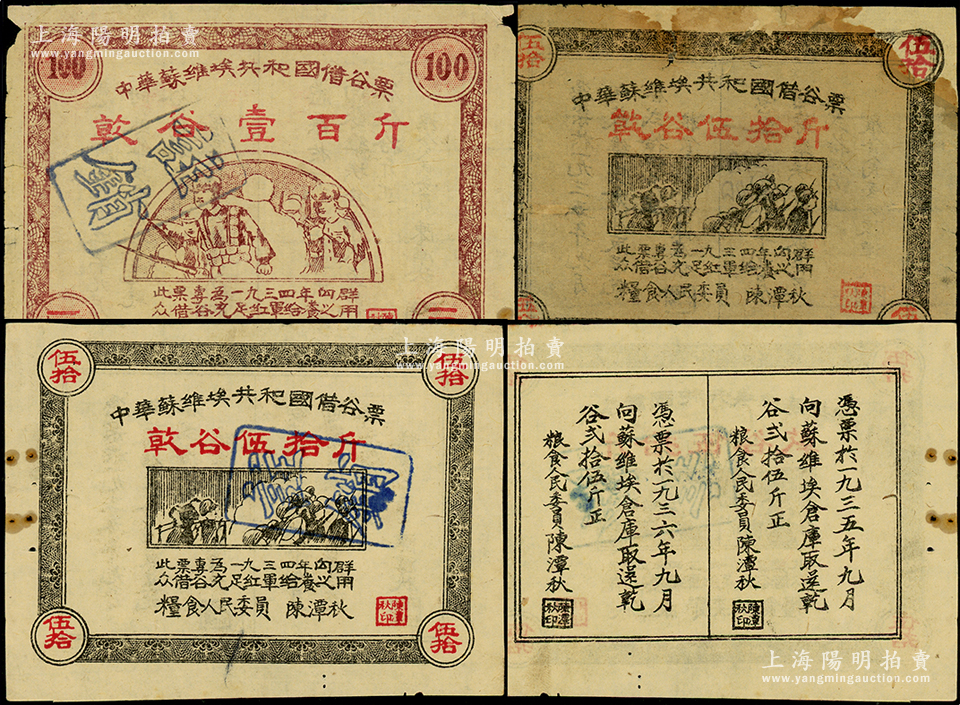 上海陽明拍賣
www.yangmingauction.com
100
100
中華蘇維埃共和國借谷票
乾谷壹百斤
此票專為一九三四年向群
眾借谷充足紅軍給養之用
伍拾
伍拾
中華蘇維埃共和國借谷票
乾谷伍拾斤
此票專為一九三四年向群
眾借谷充足紅軍給養之用
糧食人民委員 陳潭秋
陳潭秋印
上海陽明拍賣
www.yangmingauction.com
伍拾
伍拾
中華蘇維埃共和國借谷票
乾谷伍拾斤
此票專為一九三四年向群
眾借谷充足紅軍給養之用
糧食人民委員 陳潭秋
陳潭秋印
伍拾
伍拾
憑票於一九三五年九月
向蘇維埃倉庫取還乾
谷弍拾伍斤正
粮食人民委員陳潭秋
陳潭秋印
憑票於一九三六年九月
向蘇維埃倉庫取還乾
谷弍拾伍斤正
粮食人民委員陳潭秋
陳潭秋印
上海陽明拍賣
www.yangmingauction.com